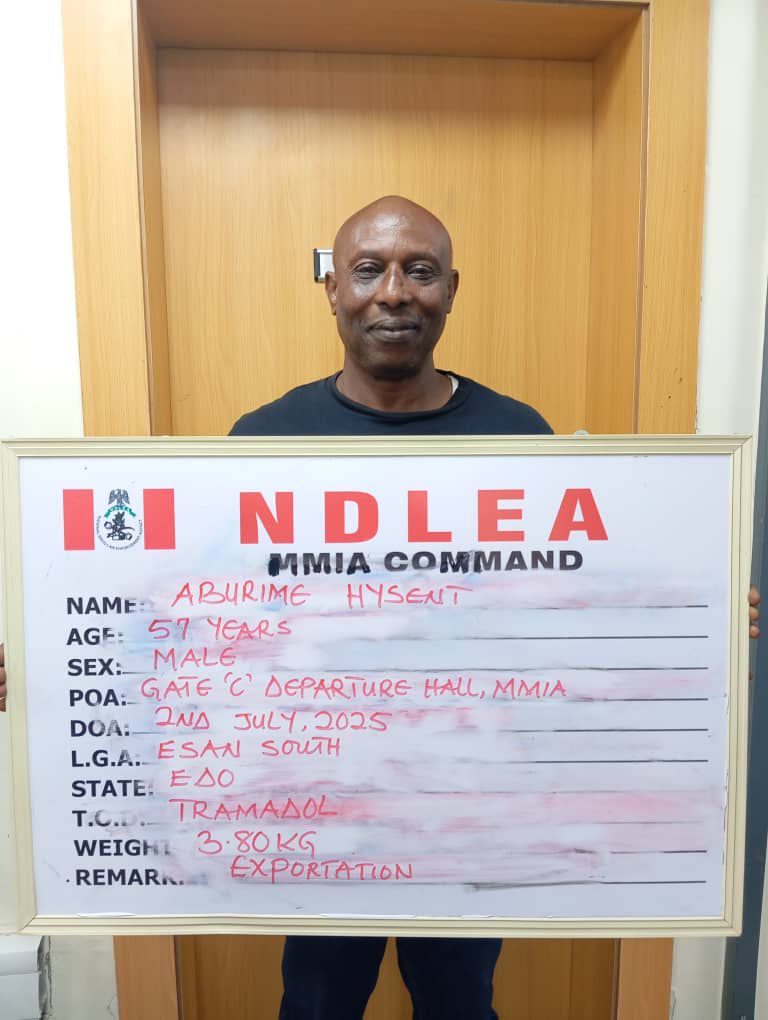 NDLEA
MMIA COMMAND
NAME: ABURIME HYSENT
AGE: 57 YEARS
SEX: MALE
POA: GATE 'C' DEPARTURE HALL, MMIA
DOA: 2ND JULY, 2025
L.G.A. ESAN SOUTH
STATE: EDO
T.O.D. TRAMADOL
WEIGHT 3.80KG
REMARK: EXPORTATION